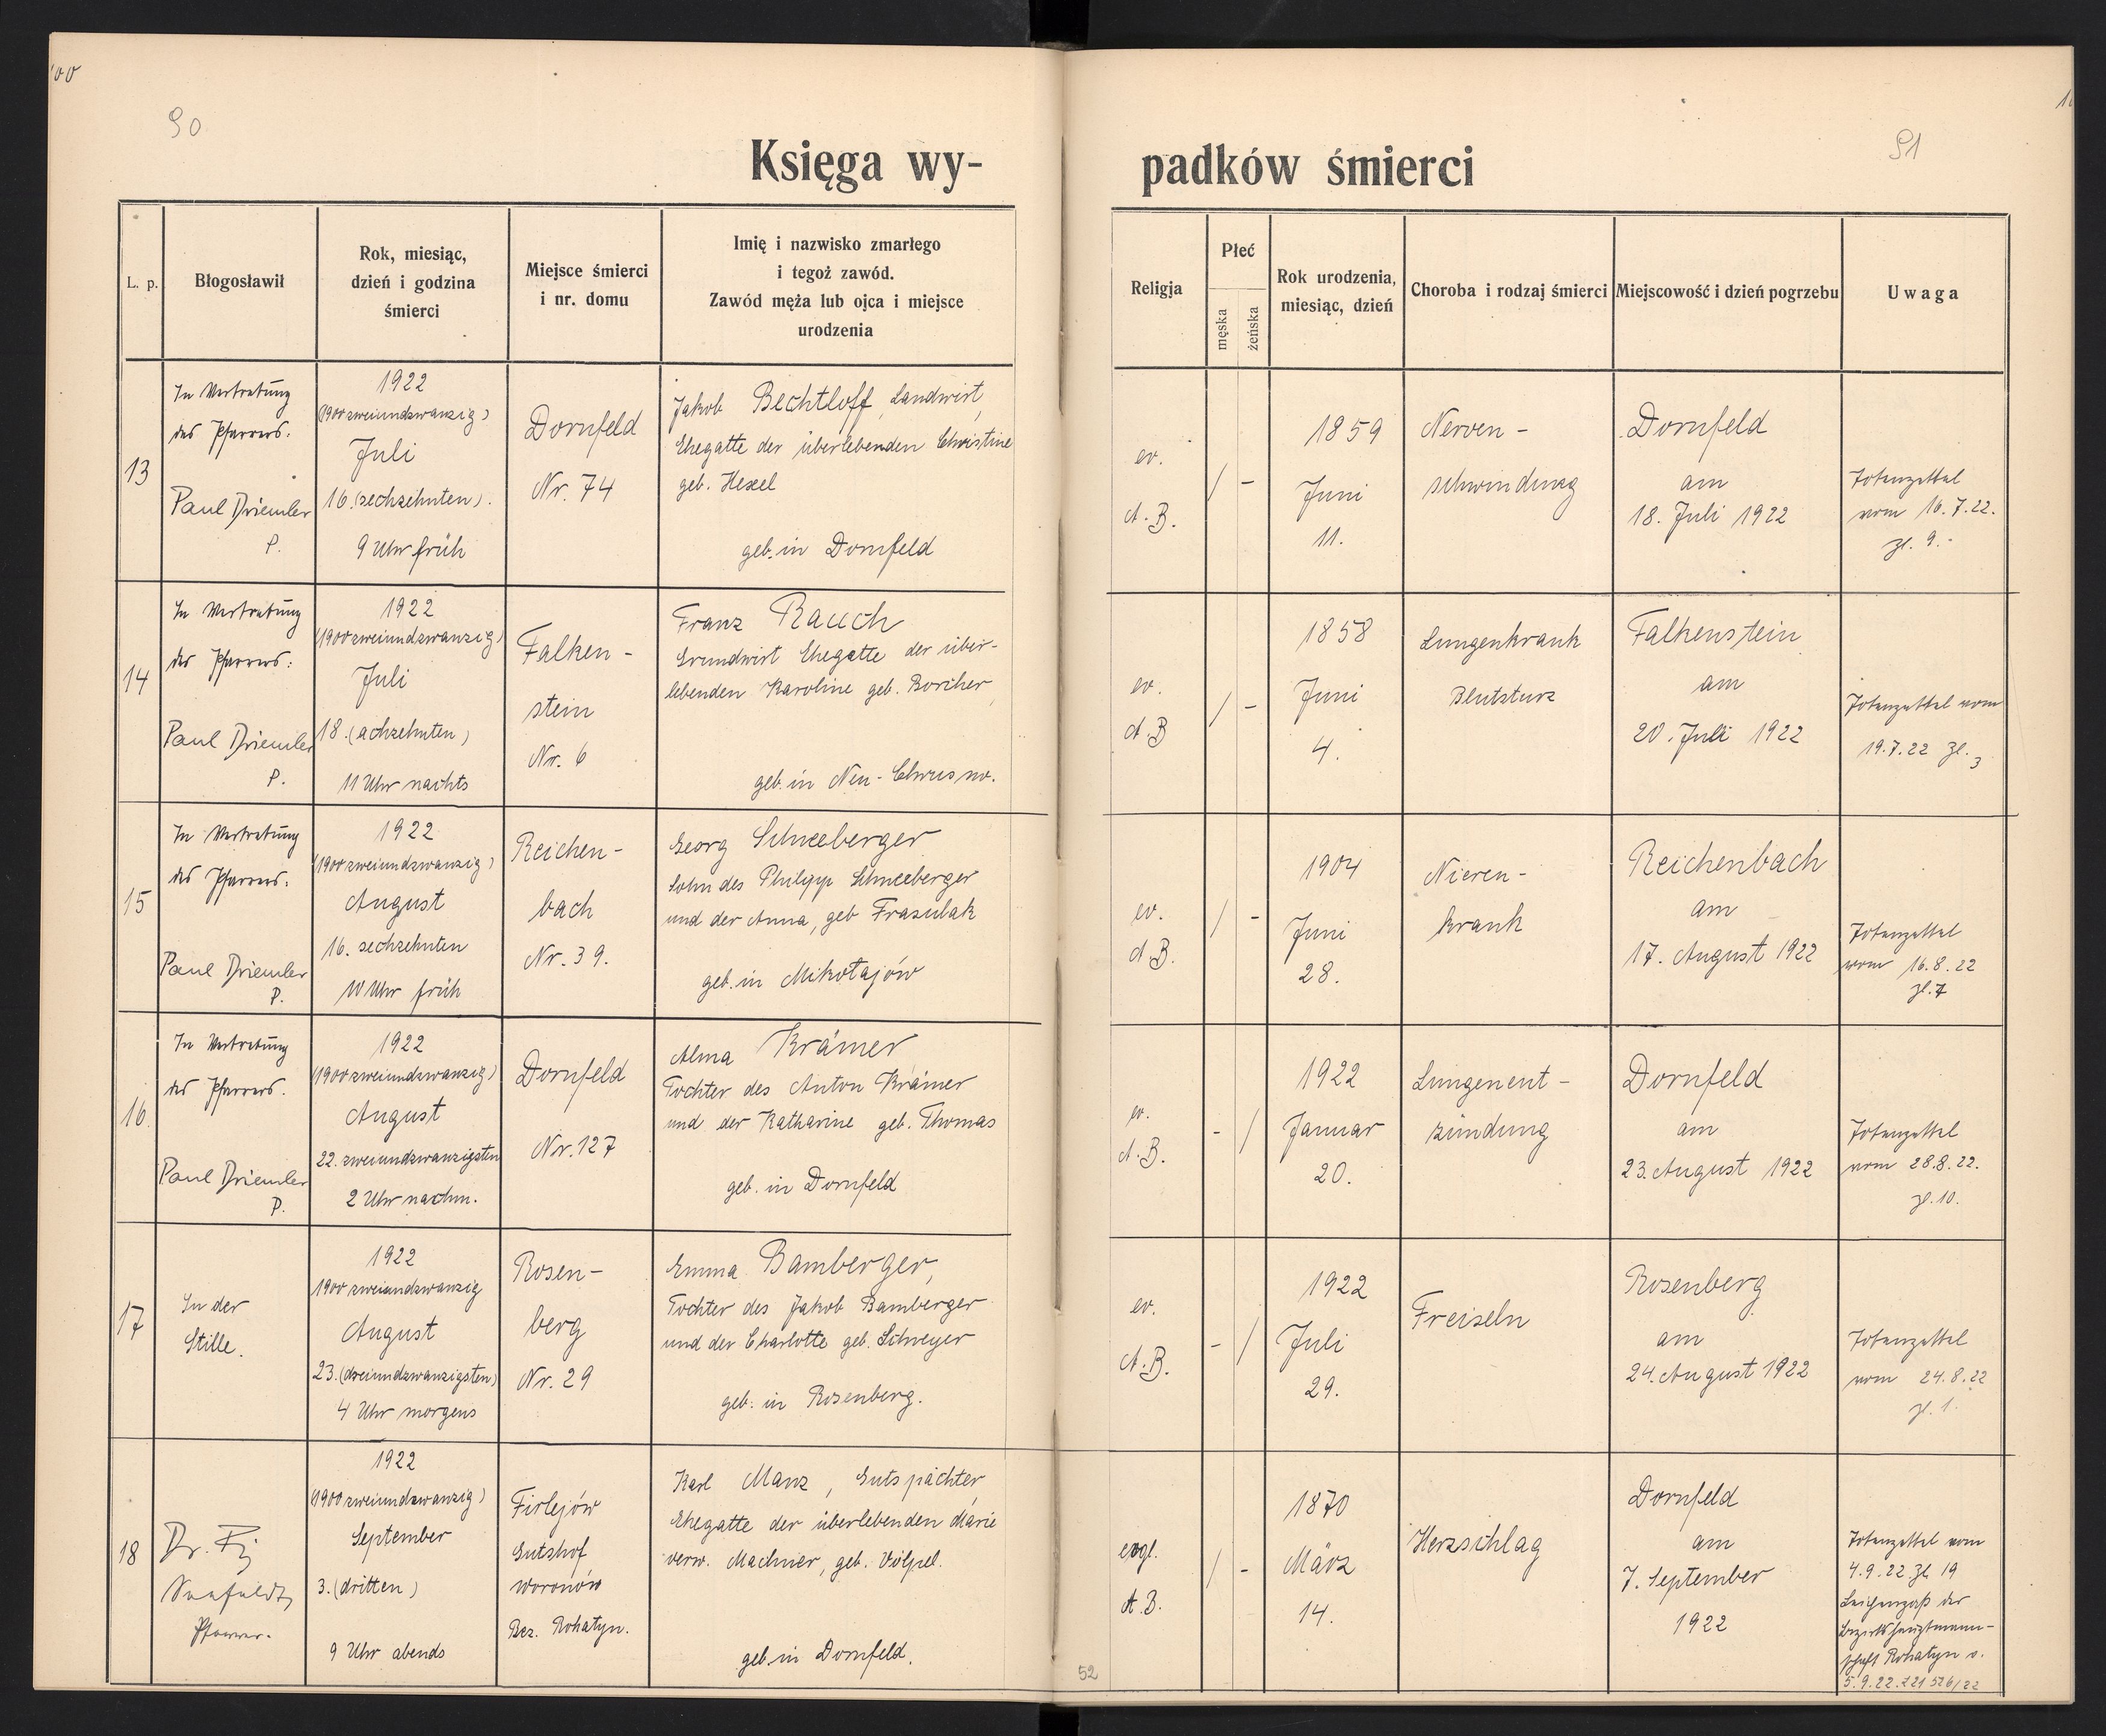 90
Księga wy-
L. p.
Błogosławił
Rok, miesiąc,
dzień i godzina
śmierci
Miejsce śmierci
i nr. domu
Imię i nazwisko zmarłego
i tegoż zawód.
Zawód męża lub ojca i miejsce
urodzenia
13
In Vertretung
des Pfarrers:
Paul Driemler
P.
1922
(1900 zweiundzwanzig)
Juli
16. (sechzehnten).
9 Uhr früh
Dornfeld
Nr. 74
Jakob Bechtloff, Landwirt,
Ehegatte der überlebenden Christine
geb. Hexel
geb. in Dornfeld
14
In Vertretung
des Pfarrers:
Paul Driemler
P.
1922
(1900 zweiundzwanzig)
Juli
18. (achzehnten)
11 Uhr nachts
Falken-
stein
Nr. 6
Franz Rauch
Grundwirt Ehegatte der über-
lebenden Karoline geb. Borcher,
geb. in Neu-Chrusno.
15
In Vertretung
des Pfarrers:
Paul Driemler
P.
1922
(1900 zweiundzwanzig)
August
16. sechzehnten
10 Uhr früh
Reichen-
bach
Nr. 39.
Georg Schneeberger
Sohn des Philipp Schneeberger
und der Anna, geb Frasulak
geb. in Mikołajów
16.
In Vertretung
des Pfarrers.
Paul Driemler
P.
1922
(1900 zweiundzwanzig)
August
22. zweiundzwanzigsten
2 Uhr nachm.
Dornfeld
Nr. 127
Alma Krämer
Tochter des Anton Krämer
und der Katharine geb. Thomas
geb. in Dornfeld
17
In der
Stille.
1922
1900 zweiundzwanzig
August
23. (dreiundzwanzigsten)
4 Uhr morgens
Rosen-
berg
Nr. 29
Emma Bamberger,
Tochter des Jakob Bamberger
und der Charlotte geb. Schweyer
geb. in Rosenberg.
18
Dr. Fr
Seefeldt
Pfarrer.
1922
(1900 zweiundzwanzig)
September
3. (dritten)
9 Uhr abends
Firlejów
Gutshof
Woronów
Bez. Rohatyn.
Karl Manz, Gutspächter
Ehegatte der überlebenden Marie
verw. Machner, geb. Völpel.
geb. in Dornfeld.
91
padków śmierci
Religja
Płeć
męska
żeńska
Rok urodzenia,
miesiąc, dzień
Choroba i rodzaj śmierci
Miejscowość i dzień pogrzebu
Uwaga
ev.
A. B.
/ -
1859
Juni
11.
Nerven-
schwindung
Dornfeld
am
18. Juli 1922
Totenzettel
vom 16.7.22.
Zl. 9.-
ev.
A. B
/ -
1858
Juni
4.
Lungenkrank
Blutsturz
Falkenstein
am
20. Juli 1922
Totenzettel vom
19.7.22 Zl. 3
ev.
A. B.
/ -
1904
Juni
28.
Nieren-
krank
Reichenbach
am
17. August 1922
Totenzettel
vom 16.8.22
Zl. 7
ev.
A. B.
- /
1922
Januar
20.
Lungenent-
zündung
Dornfeld
am
23. August 1922
Totenzettel
vom 28.8.22.
Zl. 10.
ev.
A. B.
- /
1922
Juli
29.
Freiseln
Rosenberg
am
24. August 1922
Totenzettel
vom 24.8.22
Zl. 1.
evgl.
A. B.
/ -
1870
März
14.
Herzschlag
Dornfeld
am
7. September
1922
Totenzettel vom
4.9.22 Zl. 19
Leichenpaß der
Bezirkshauptmann-
schaft Rohatyn v.
5.9.22.
52